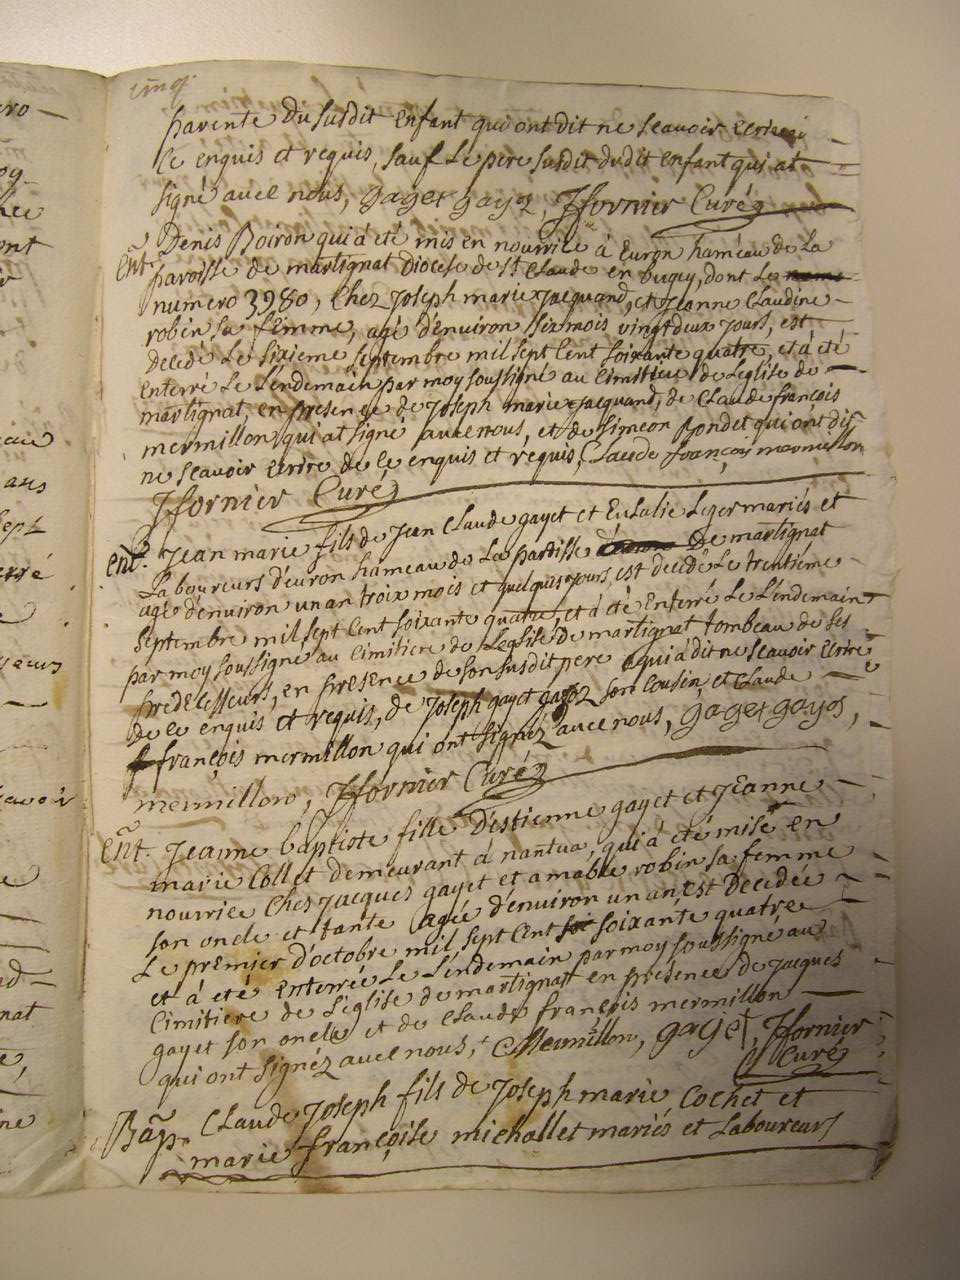 cinq.
parente du susdit enfant qui ont dit ne scavoir ecrire
de ce enquis et requis, sauf le pere susdit dudit enfant qui at
signé avec nous, gayet gayet, J fornier Curé
Ent. Denis Boiron qui á été mis en nourrice á Euron hameau de la
paroisse de martignat Diocese de st Claude en bugey, dont le
numero 3980, chez Joseph marie Jacquand, et Jeanne Claudine
robin sa femme, agé d'environ six mois vingt deux jours, est
decedé le sixieme septembre mil sept cent soixante quatre, et á été
enterré le Lendemain par moy soussigné au cimitiere de Leglise de
martignat, en presence de Joseph marie Jacquand, de Claude françois
mermillon qui at signé avec nous, et de Simeon Rondet qui ont dit
ne scavoir ecrire de ce enquis et requis, Claude françois mermillon
J fornier Curé
Ent. Jean marie fils de Jean Claude gayet et Eulalie Leger mariés et
Laboureurs d'euron hameau de La paroisse de martignat
agé d'environ un an trois mois et quelques jours, est decedé Le trentieme
septembre mil sept cent soixante quatre, et á été enterré Le Lendemain
par moy soussigné au cimitiere de Leglise de martignat tombeau de ses
predecesseurs, en presence de son susdit pere qui á dit ne scavoir ecrire
de ce enquis et requis, de Joseph gayet son cousin, et Claude
françois mermillon qui ont signéz avec nous, gayet gayet,
mermillon, J fornier Curé
Ent. Jeanne baptiste fille d'estienne gayet et Jeanne
marie Collet demeurant á nantua, qui á été mise en
nourrice Chez Jacques gayet et amable robin sa femme
son oncle et tante agée d'environ un an, est Decedée
Le premier d'octobre mil sept cent soixante quatre
et á eté enterrée Le Lendemain par moy soussigné au
Cimitiere de Leglise de martignat en presence de Jacques
gayet son oncle et de Claude françois mermillon
qui ont signéz avec nous, Mermillon, gayet, J fornier
Curé
Bap. Claude Joseph fils de Joseph marie Cochet et
marie françoise michallet mariés et Laboureurs